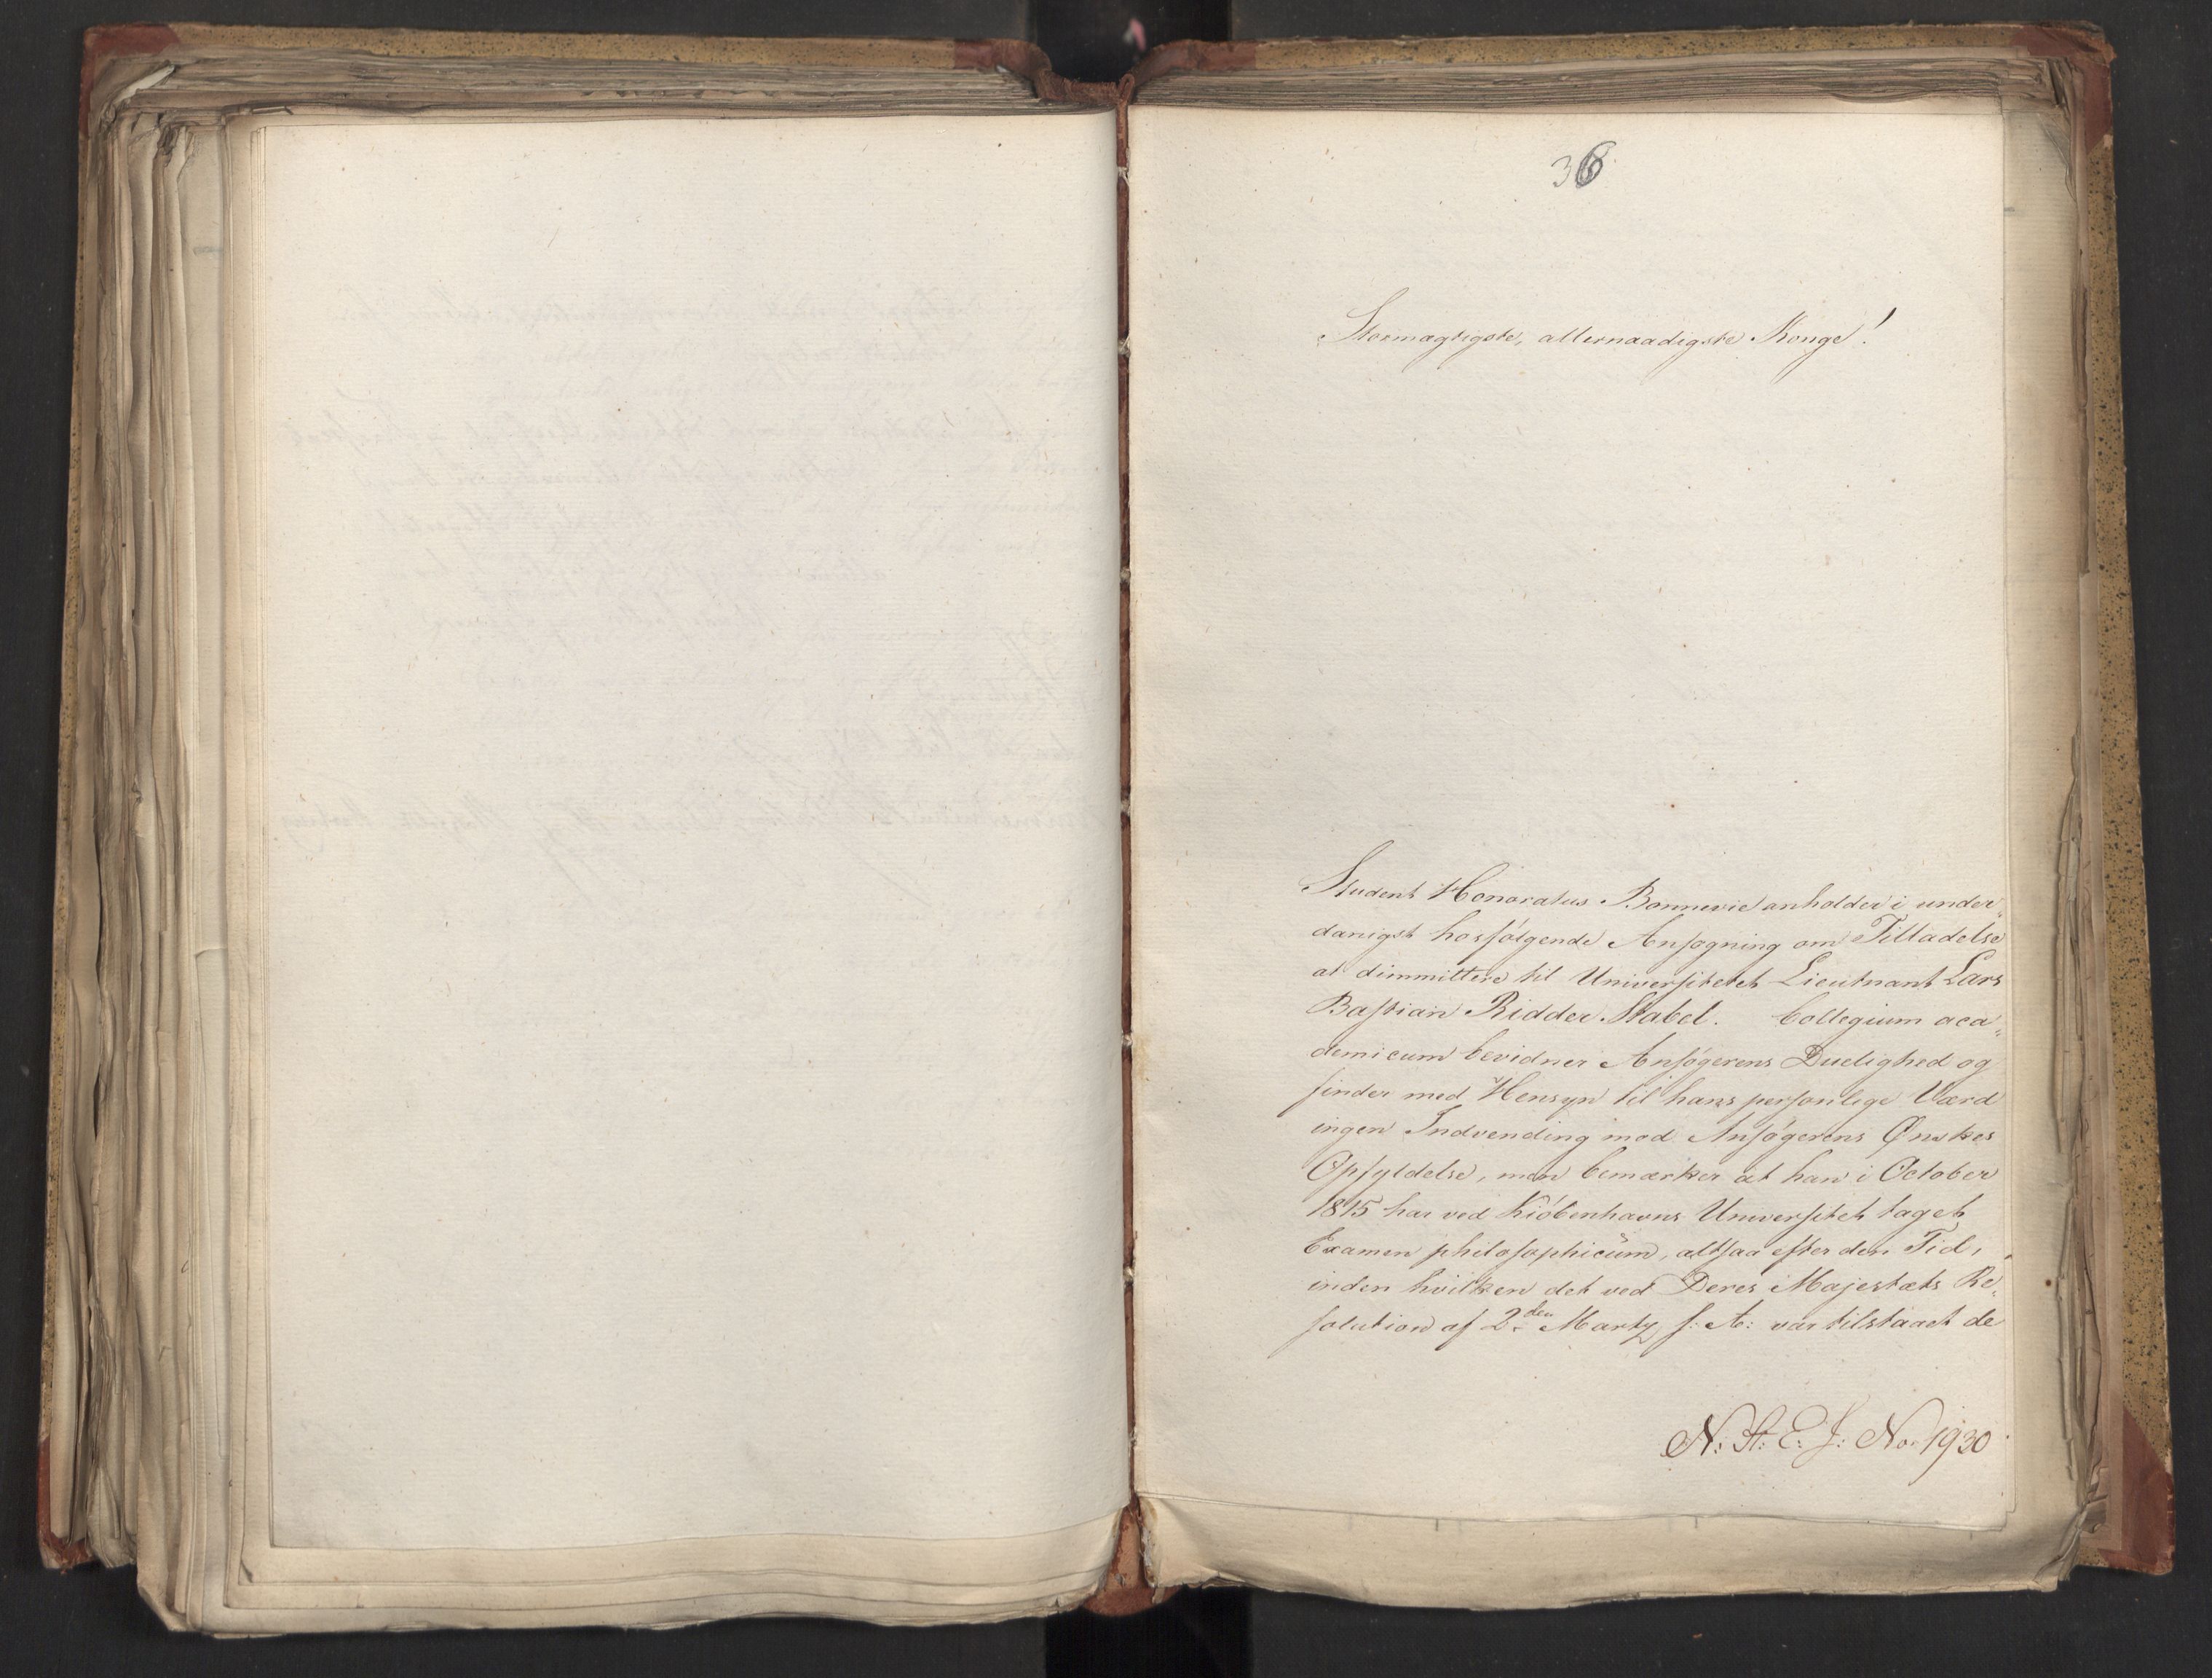 36
Stormægtigste, allernaadigste Konge!
Student Honoratus Bonnevie anholder i under„
danigst hosfølgende Ansøgning om Tilladelse
at dimmittere til Universitetet Lieutnant Lars
Bastian Ridder Stabel. Collegium aca„
demicum bevidner Ansøgerens Duelighed og
finder med Hensyn til hans personlige Værd
ingen Indvending mod Ansøgerens Ønskes
Opfyldelse, men bemærker at han i October
1815 har ved Kiøbenhavns Universitet taget
Examen philosophicum, altsaa efter den Tid,
inden hvilken det ved Deres Majestæts Re„
solution af 2den Marty f: A: var tilstaaet de
N: St: E: J: No 1930